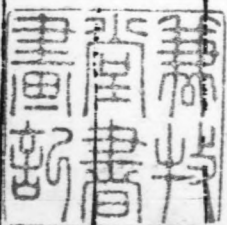 兼牧
堂書
畫記